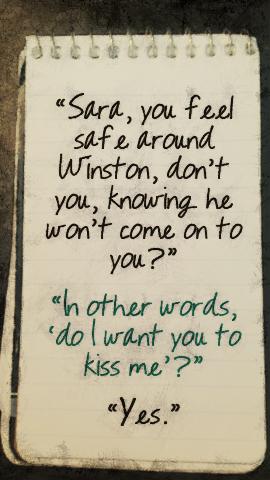 "Sara, you feel
safe around
Winston, don't
you, knowing he
won't come on to
you?"
"In other words,
'do I want you to
kiss me'?"
"Yes."